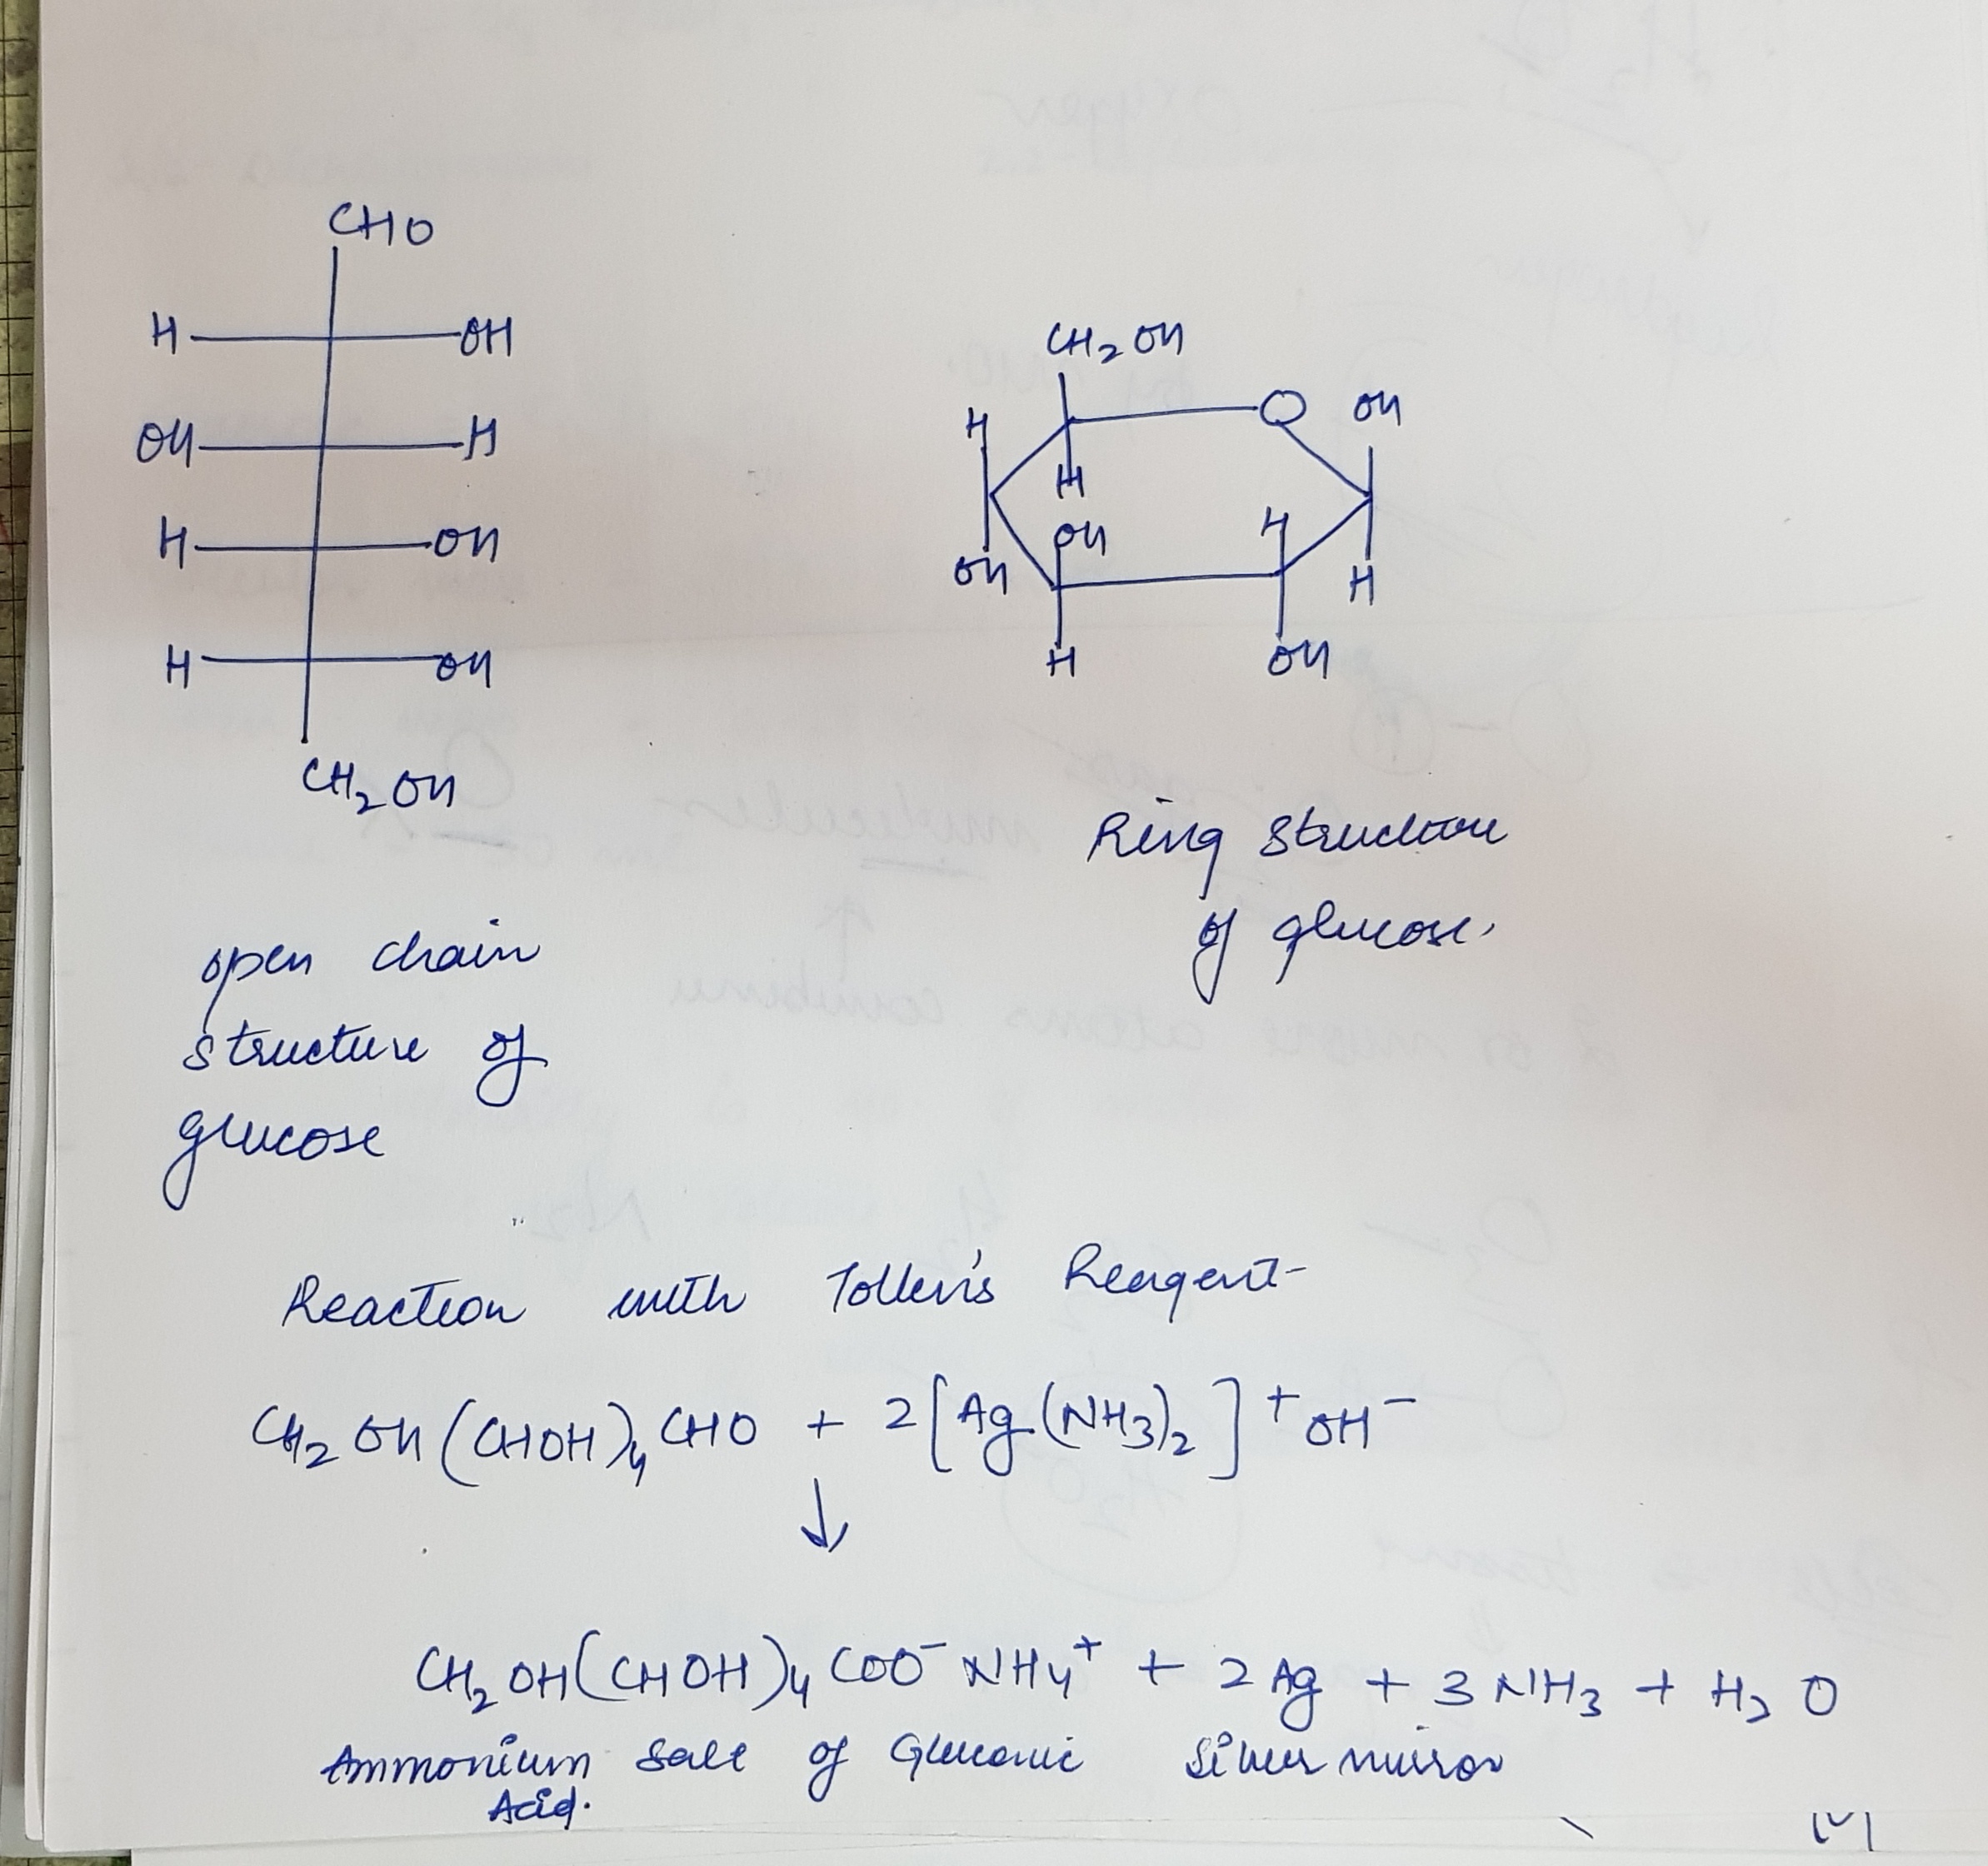 CHO
H OH
OH H
H OH
H OH
CH2OH
open chain
structure of
glucose
CH2OH
O OH
H
H
OH H
OH H
H OH
Ring structure
of glucose.
Reaction with Tollen's Reagent-
CH2OH(CHOH)4CHO + 2[Ag(NH3)2]+OH-
↓
CH2OH(CHOH)4COO-NH4+ + 2Ag + 3NH3 + H2O
Ammonium salt of Gluconic silver mirror
Acid.